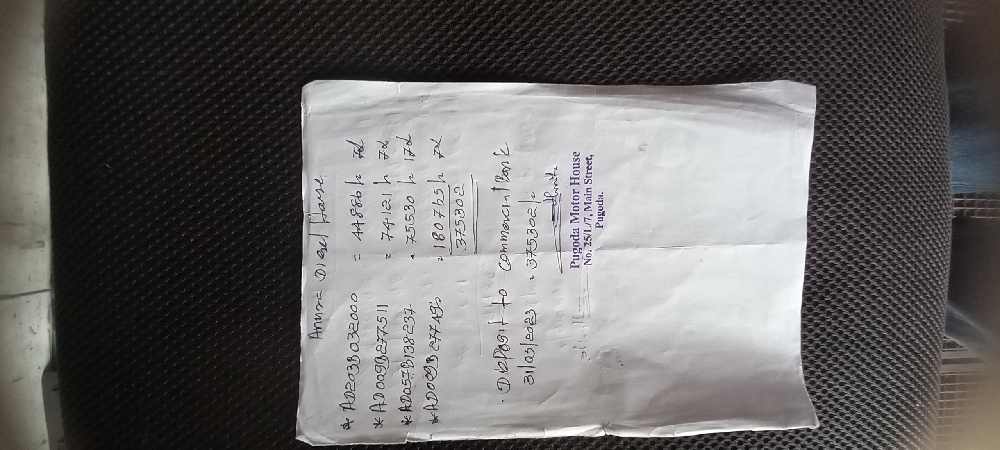 Anura Diesel House
* AD203B032000 = 44886/= 7d
* AD009B277511 = 74121/= 7d
* AD057B138237 = 75530/= 17d
* AD009B277493 = 180765/= 7d
375302
Diposit to Commercial Bank
31/03/2023 = 375302/=
Pugoda Motor House
No. 25/L/7, Main Street,
Pugoda.